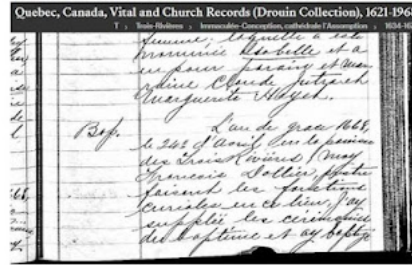 Quebec, Canada, Vital and Church Records (Drouin Collection), 1621-196
T › Trois-Rivières › Immaculée-Conception, cathédrale l'Assomption › 1634-16
femme, laquelle a esté
nommée Isabelle et a
eu pour parain et mar-
raine Claude Jutra
Marguerite Hayet.
Bap.
L'an de grace 1668,
le 24e d'Avril, en la
des Trois Rivières, moy
François Dollier,
faisant les fonctions
curiales en ce lieu, j'ay
suppléé les cérémonies
du baptême et ay baptizé